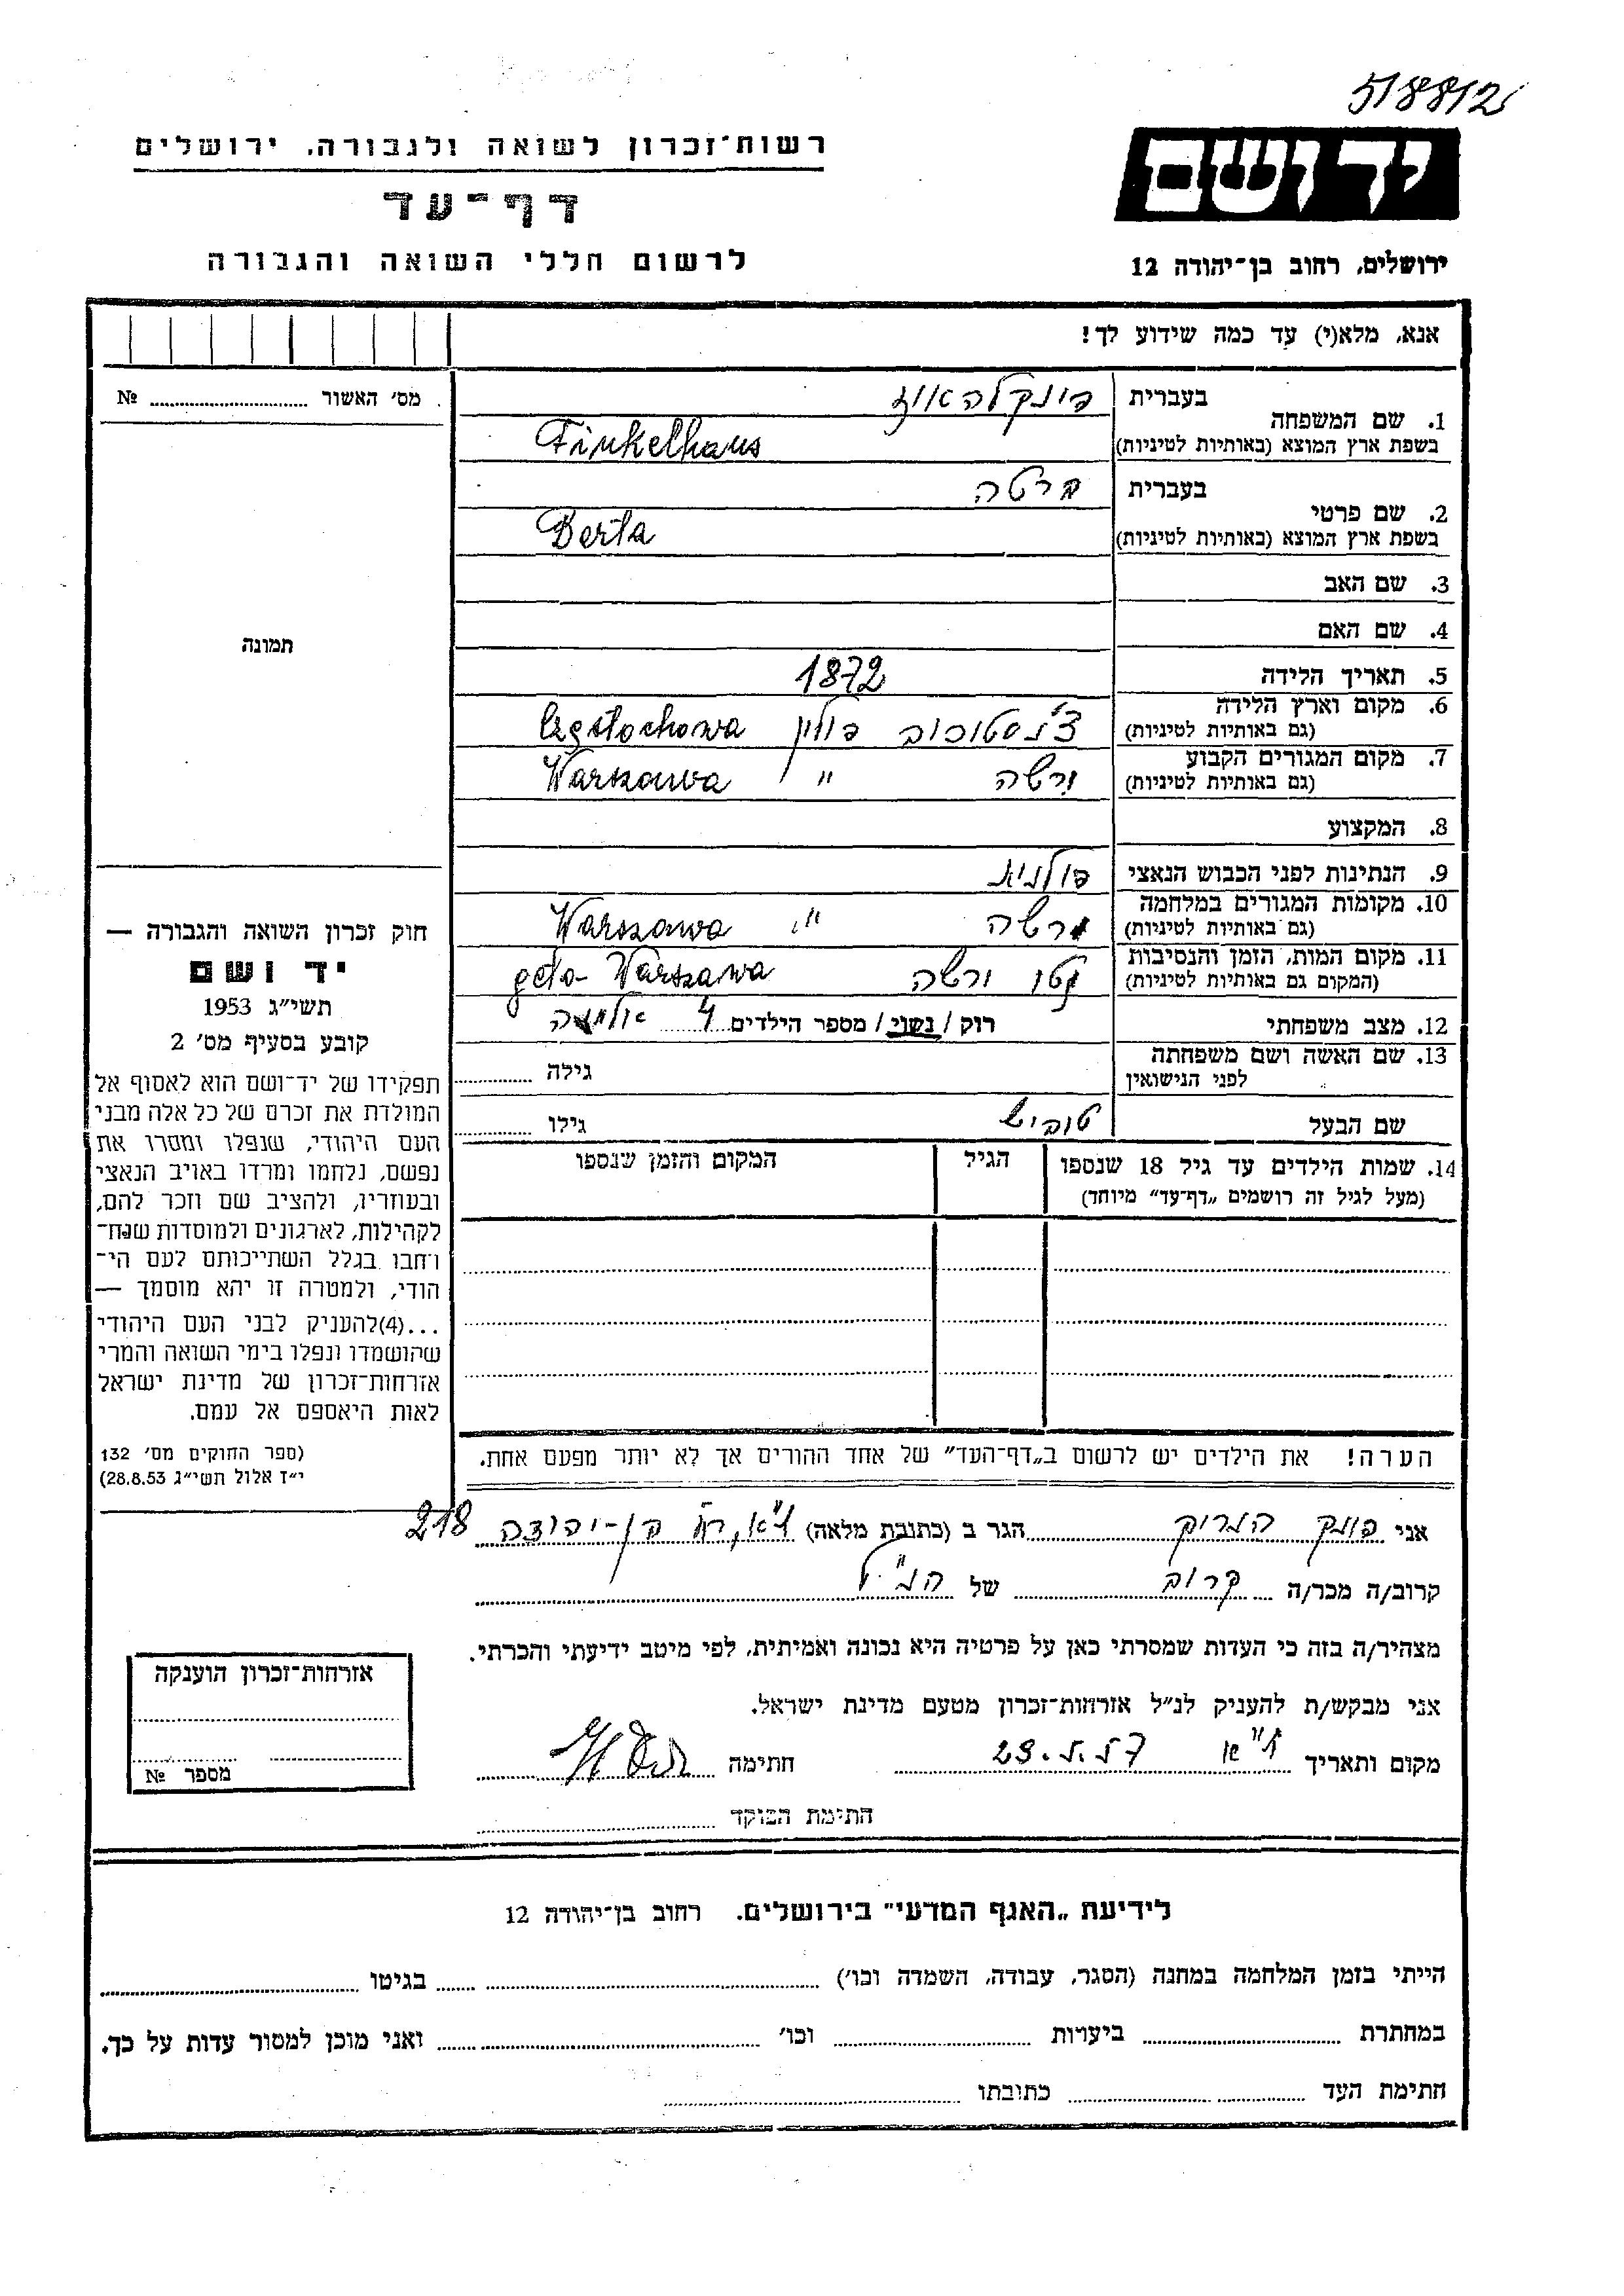 518812
יד ושם
רשות־זכרון לשואה ולגבורה, ירושלים
דף־עד
לרשום חללי השואה והגבורה
ירושלים, רחוב בן־יהודה 12
אנא, מלא(י) עד כמה שידוע לך!
מס׳ האשור № 
תמונה
1. שם המשפחה
בעברית פינקלהאוז
בשפת ארץ המוצא (באותיות לטיניות) Finkelhaus
2. שם פרטי
בעברית ברטה
בשפת ארץ המוצא (באותיות לטיניות) Berta
3. שם האב
4. שם האם
5. תאריך הלידה 1872
6. מקום וארץ הלידה
(גם באותיות לטיניות) צ׳נסטוכוב פולין Częstochowa
7. מקום המגורים הקבוע
(גם באותיות לטיניות) ורשה " Warszawa
8. המקצוע
9. הנתינות לפני הכבוש הנאצי פולנית
10. מקומות המגורים במלחמה
(גם באותיות לטיניות) ורשה " Warszawa
11. מקום המות, הזמן והנסיבות
(המקום גם באותיות לטיניות) גטו ורשה geto Warszawa
12. מצב משפחתי רוק / נשוי / מספר הילדים 4 אלמנה
13. שם האשה ושם משפחתה
לפני הנישואין גילה
שם הבעל טוביש גילו
14. שמות הילדים עד גיל 18 שנספו
(מעל לגיל זה רושמים „דף־עד" מיוחד)
הגיל
המקום והזמן שנספו
הערה! את הילדים יש לרשום ב„דף־העד" של אחד ההורים אך לא יותר מפעם אחת.
חוק זכרון השואה והגבורה —
יד ושם
תשי״ג 1953
קובע בסעיף מס׳ 2
תפקידו של יד־ושם הוא לאסוף אל
המולדת את זכרם של כל אלה מבני
העם היהודי, שנפלו ומסרו את
נפשם, נלחמו ומרדו באויב הנאצי
ובעוזריו, ולהציב שם וזכר להם,
לקהילות, לארגונים ולמוסדות שנח־
רחבו בגלל השתייכותם לעם הי־
הודי, ולמטרה זו יהא מוסמך —
...(4)להעניק לבני העם היהודי
שהושמדו ונפלו בימי השואה והמרי
אזרחות־זכרון של מדינת ישראל
לאות היאספם אל עמם.
(ספר החוקים מס׳ 132
י״ז אלול תשי״ג 28.8.53)
אני הנריק הגר ב (כתובת מלאה) ת"א, רח׳ בן-יהודה 218
קרוב/ה מכר/ה קרוב של הנ"ל
מצהיר/ה בזה כי העדות שמסרתי כאן על פרטיה היא נכונה ואמיתית, לפי מיטב ידיעתי והכרתי.
אני מבקש/ת להעניק לנ״ל אזרחות־זכרון מטעם מדינת ישראל.
מקום ותאריך ת"א חתימה
חתימת הפוקד
אזרחות־זכרון הוענקה
מספר №
לידיעת „האגף המדעי" בירושלים. רחוב בן־יהודה 12
הייתי בזמן המלחמה במחנה (הסגר, עבודה, השמדה וכו׳) בגיטו
במחתרת ביערות וכו׳ ואני מוכן למסור עדות על כך.
חתימת העד כתובתו